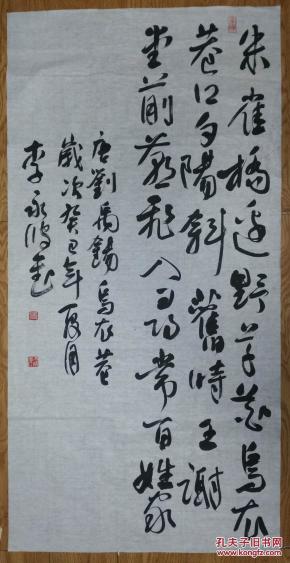 朱雀橋邊野草花烏衣
巷口夕陽斜舊時王謝
堂前燕飛入尋常百姓家
唐劉禹錫烏衣巷
歲次癸巳年夏月
李永
孔夫子旧书网